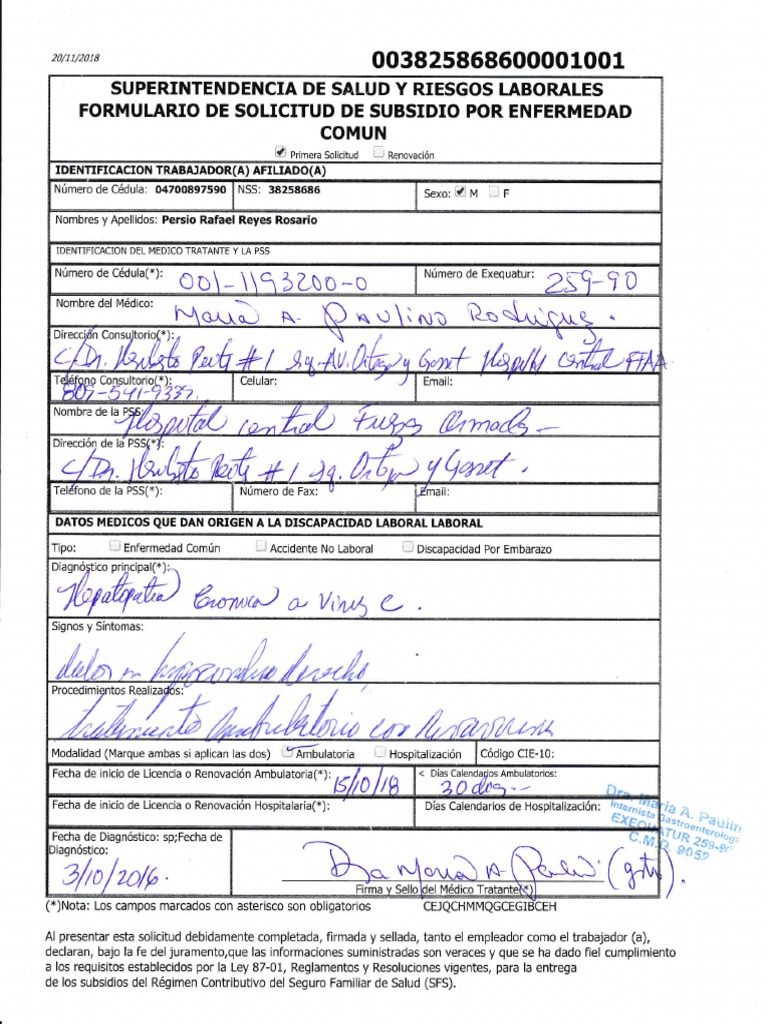 20/11/2018
003825868600001001
SUPERINTENDENCIA DE SALUD Y RIESGOS LABORALES
FORMULARIO DE SOLICITUD DE SUBSIDIO POR ENFERMEDAD
COMUN
Primera Solicitud Renovación
IDENTIFICACION TRABAJADOR(A) AFILIADO(A)
Número de Cédula: 04700897590 NSS: 38258686 Sexo: M F
Nombres y Apellidos: Persio Rafael Reyes Rosario
IDENTIFICACION DEL MEDICO TRATANTE Y LA PSS
Número de Cédula(*): 001-1193200-0 Número de Exequatur: 259-90
Nombre del Médico: Maria A. Paulino Rodriguez.
Dirección Consultorio(*):
c/Dr. Heriberto Pieter #1 Esq. AV. Ortega y Gasset Hospital Central FFAA
Teléfono Consultorio(*): Celular: Email:
809-541-9339.
Nombre de la PSS(*): Hospital Central Fuerzas Armadas
Dirección de la PSS(*):
c/Dr. Heriberto Pieter #1 Esq. Ortega y Gasset.
Teléfono de la PSS(*): Número de Fax: Email:
DATOS MEDICOS QUE DAN ORIGEN A LA DISCAPACIDAD LABORAL LABORAL
Tipo: Enfermedad Común Accidente No Laboral Discapacidad Por Embarazo
Diagnóstico principal(*):
Hepatopatia Cronica a Virus C.
Signos y Síntomas:
dolor en hipocondrio derecho,
Procedimientos Realizados:
tratamiento Ambulatorio con
Modalidad (Marque ambas si aplican las dos) Ambulatoria Hospitalización Código CIE-10:
Fecha de inicio de Licencia o Renovación Ambulatoria(*): 15/10/18 < Días Calendarios Ambulatorios: 30 dias
Fecha de inicio de Licencia o Renovación Hospitalaria(*): Días Calendarios de Hospitalización:
Dra. Maria A. Paulin
Internista Gastroenterologa
EXEQUATUR 259-90
C.M.D. 9052
Fecha de Diagnóstico: sp;Fecha de
Diagnóstico:
3/10/2016.
Dra Maria A. Paulino (gstr).
Firma y Sello del Médico Tratante(*)
(*)Nota: Los campos marcados con asterisco son obligatorios CEJQCHMMQGCEGIBCEH
Al presentar esta solicitud debidamente completada, firmada y sellada, tanto el empleador como el trabajador (a),
declaran, bajo la fe del juramento,que las informaciones suministradas son veraces y que se ha dado fiel cumplimiento
a los requisitos establecidos por la Ley 87-01, Reglamentos y Resoluciones vigentes, para la entrega
de los subsidios del Régimen Contributivo del Seguro Familiar de Salud (SFS).